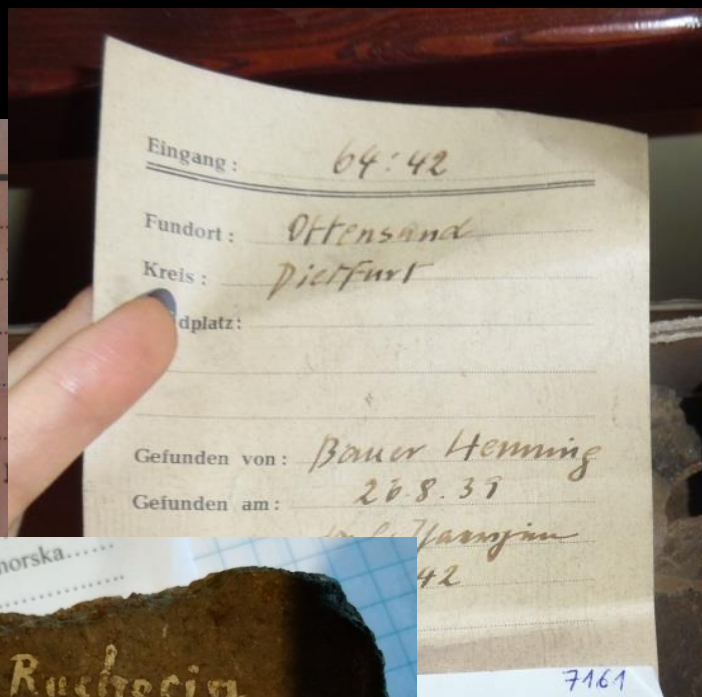 Eingang: 64:42
Fundort: Ottensund
Kreis: Dietfurt
dplatz:
Gefunden von: Bauer Henning
Gefunden am: 26.8.39
42
7161
norska......
Rucherin